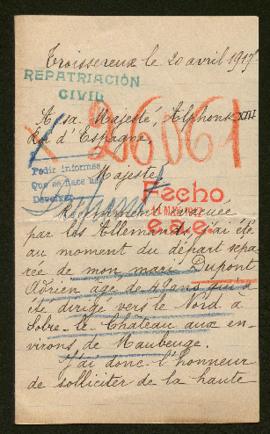 Troissereux le 20 avril 1917
REPATRIACIÓN
CIVIL
A sa Majesté, Alphonse XIII
Roi d'Espagne,
X 26061
Majesté
Pedir informes
Que se hace
Devolver
Fecho
Récemment évacuée
par les Allemands j'ai été
au moment du départ sépa
rée de mon mari Dupont
Adrien âgé de ans qui a
été dirigé vers le Nord à
Solre-le Château aux en-
virons de Maubeuge.
J'ai donc l'honneur
de solliciter de la haute